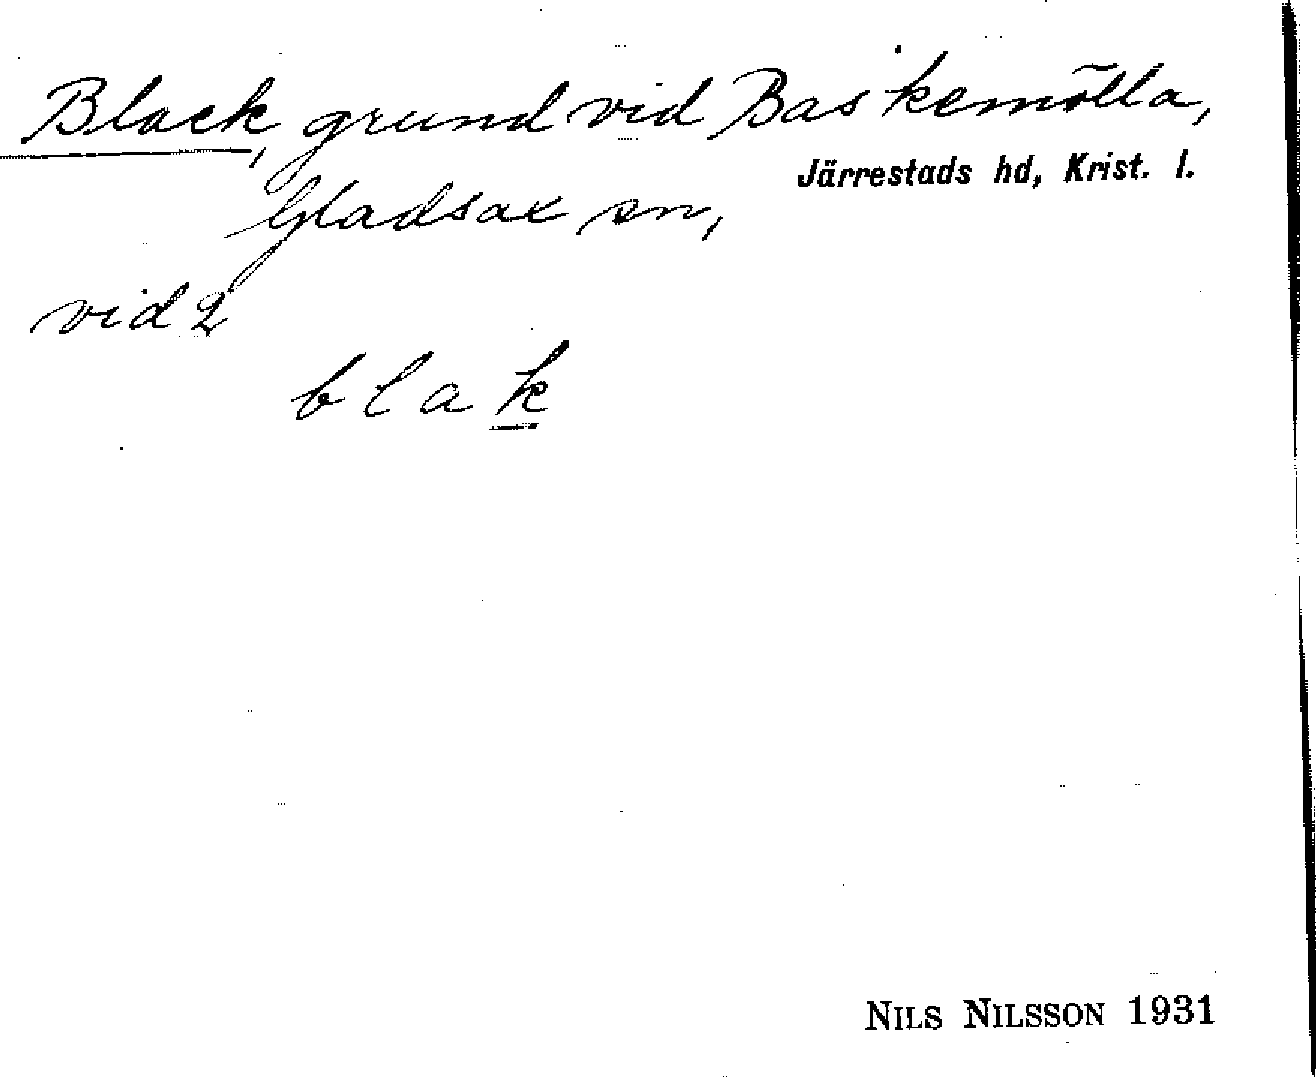 Black, grund vid Baskemölla,
Järrestads hd, Krist. l.
Gladsax sn,
vid 2
blak
NILS NILSSON 1931